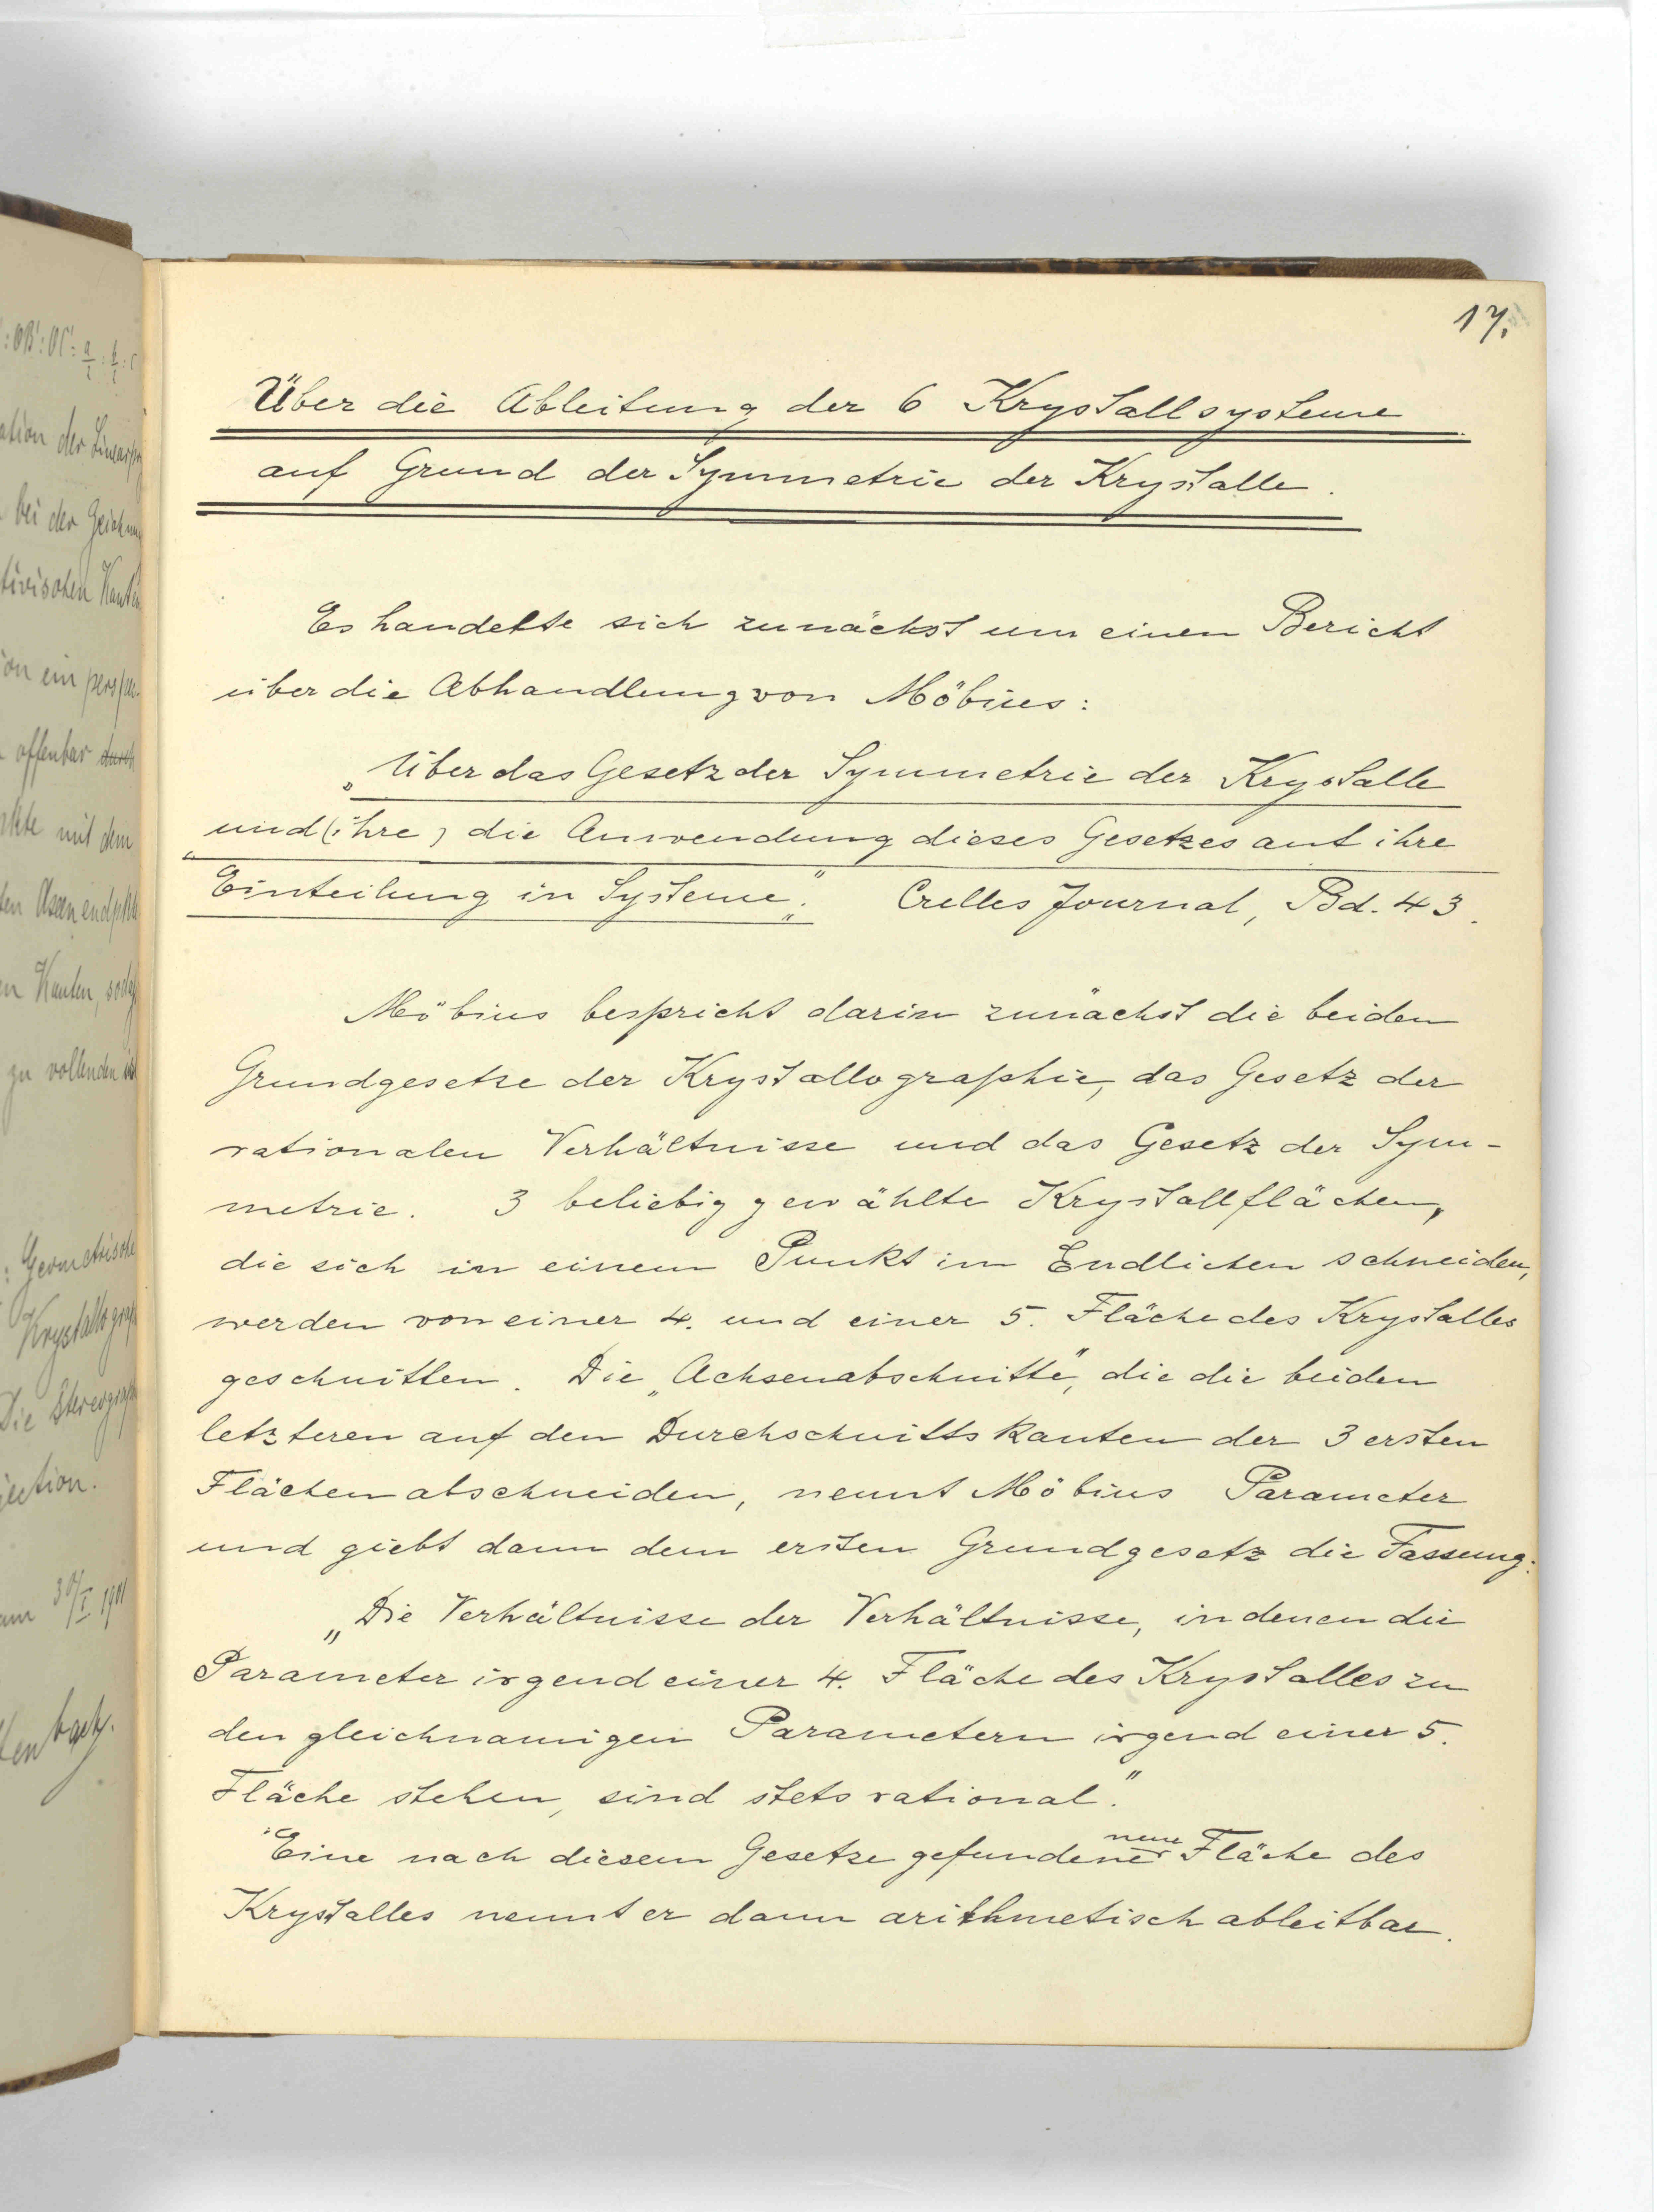 :OB':OC' = a/2 : b/2 : c
ation der
bei der
tivischen Kanten
on ein
offenbar durch
mit dem
ten
en Kanten, sodaß
zu vollenden ist
: Geometrische
Krystallograph
Die Stereograph
jection.
am 30/I 1901
17.
Über die Ableitung der 6 Krystallsysteme
auf Grund der Symmetrie der Krystalle.
Es handelte sich zunächst um einen Bericht
über die Abhandlung von Möbius:
„Über das Gesetz der Symmetrie der Krystalle
und (ihre) die Anwendung dieses Gesetzes auf ihre
Einteilung in Systeme." Crelles Journal, Bd. 43.
Möbius bespricht darin zunächst die beiden
Grundgesetze der Krystallographie, das Gesetz der
rationalen Verhältnisse und das Gesetz der Sym-
metrie. 3 beliebig gewählte Krystallflächen,
die sich in einem Punkt im Endlichen schneiden,
werden von einer 4. und einer 5. Fläche des Krystalles
geschnitten. Die „Achsenabschnitte", die die beiden
letzteren auf den Durchschnittskanten der 3 ersten
Flächen abschneiden, nennt Möbius Parameter
und giebt dann dem ersten Grundgesetz die Fassung:
„Die Verhältnisse der Verhältnisse, in denen die
Parameter irgend einer 4. Fläche des Krystalles zu
den gleichnamigen Parametern irgend einer 5.
Fläche stehen, sind stets rational."
Eine nach diesem Gesetze gefundene neue Fläche des
Krystalles nennt er dann arithmetisch ableitbar.